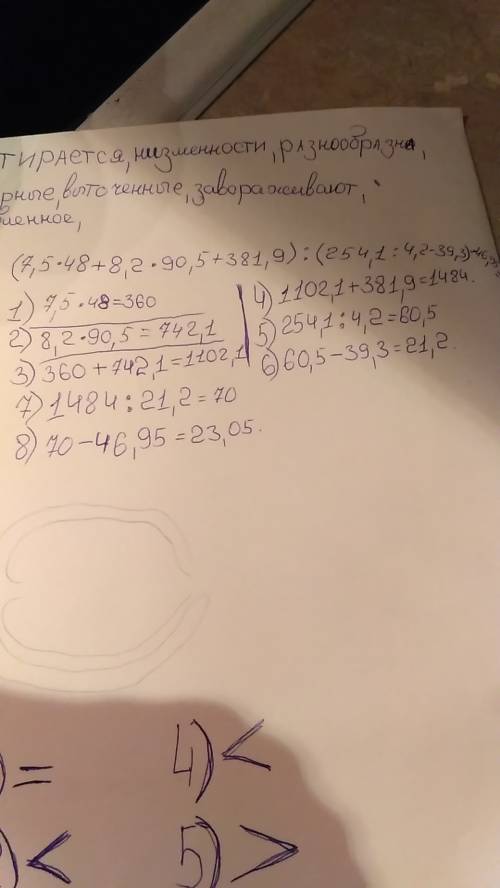 низменности, разнообразна,
выточенные, завораживают,
(7,5·48+8,2·90,5+381,9):(254,1:4,2-39,3)-46,95
1) 7,5·48=360
2) 8,2·90,5=742,1
3) 360+742,1=1102,1
4) 1102,1+381,9=1484.
5) 254,1:4,2=60,5
6) 60,5-39,3=21,2.
7) 1484:21,2=70
8) 70-46,95=23,05.
) = 4) <
) < 5) >